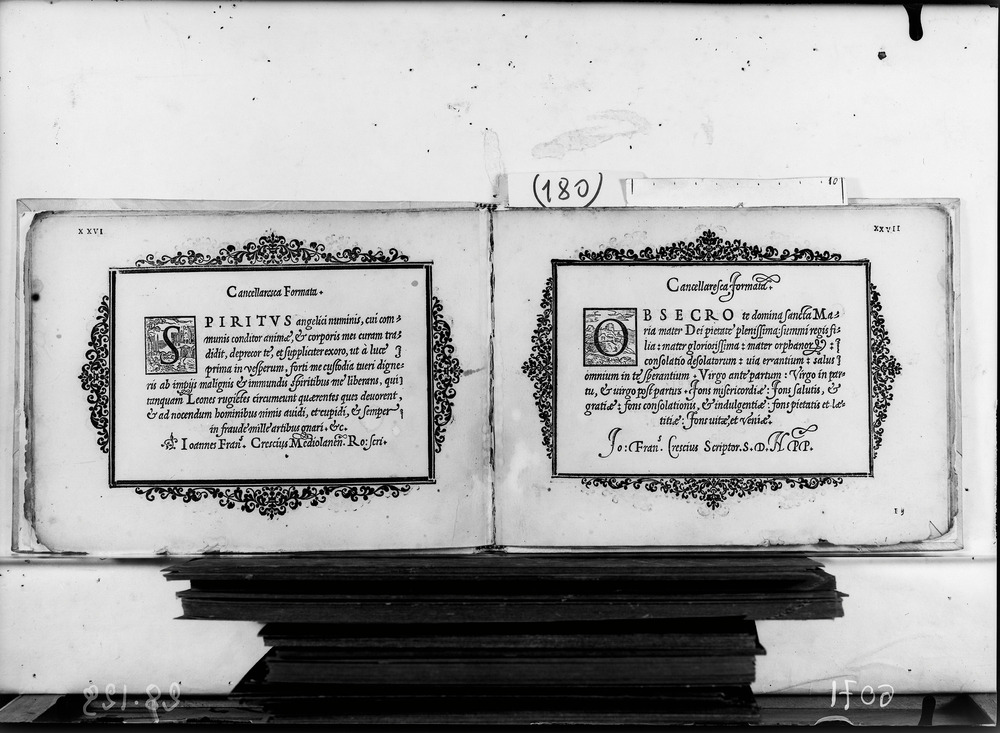 (180)
10
XXVI
Cancellaresca Formata.
SPIRITVS angelici numinis, cui com=
munis conditor animæ, & corporis mei curam tra=
didit, deprecor te, et suppliciter exoro, ut à luce
prima in vesperum, forti me custodia tueri digne=
ris ab impijs malignis & immundis spiritibus me liberans, qui
tanquam Leones rugiẽtes circumeunt quærentes quos deuorent,
& ad nocendum hominibus nimis auidi, et cupidi, & semper
in fraude mille artibus gnari. &c.
Ioannes Fran. Crescius Mediolanen. Ro: scri.
XXVII
Cancellaresca formata.
OBSECRO te domina sancta Ma=
ria mater Dei pietate plenissima: summi regis fi=
lia: mater gloriosissima: mater orphanor:
consolatio desolatorum: uia errantium: salus
omnium in te sperantium. Virgo ante partum: Virgo in par=
tu, & uirgo post partus. Fons misericordiæ: fons salutis, &
gratiæ: fons consolationis, & indulgentiæ: fons pietatis et læ=
titiæ: fons uitæ, et veniæ.
Io: Fran. Crescius Scriptor. S. D. N. PP.
28.128
1706